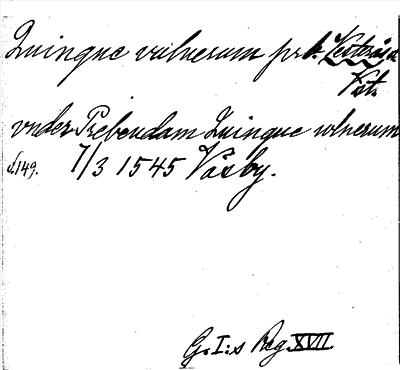 Quinque vulnerum preb. Västerås
Vstm.
vnder Prebendam Quinque wlnerum
s. 149. 7/3 1545 Väsby.
G. I:s Reg. XVII